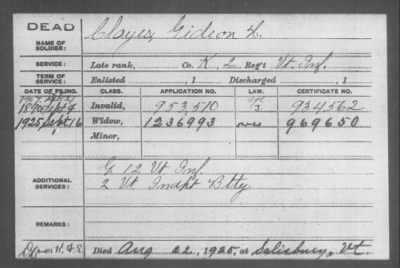 DEAD
NAME OF SOLDIER:
Clayes, Gideon L.
SERVICE:
Late rank, Co. K, 2 Regt Vt. Inf.
TERM OF SERVICE:
Enlisted , 1 Discharged , 1
DATE OF FILING. CLASS. APPLICATION NO. LAW. CERTIFICATE NO.
1890 Sept 4 Invalid, 953,510 934562
1925 Sept 16 Widow, 1236993 969650
Minor,
ADDITIONAL SERVICES:
G 12 Vt Inf.
2 Vt Indpt Btty
REMARKS:
Died Aug 22, 1925, at Salisbury, Vt.